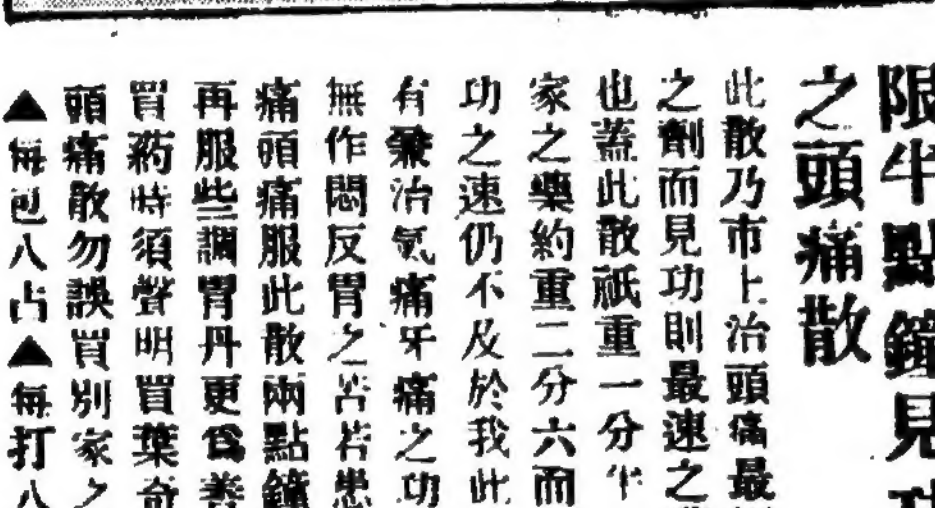 限半點鐘見功
之頭痛散
此散乃市上治頭痛最
之劑而見功則最速之
也蓋此散祇重一分半
家之藥約重二分六而
功之速仍不及於我此
有兼治氣痛牙痛之功
無作悶反胃之苦若患
痛頭痛服此散兩點鐘
再服些調胃丹更為善
買葯時須聲明買葉奇
頭痛散勿誤買別家之
▲每包八占▲每打八